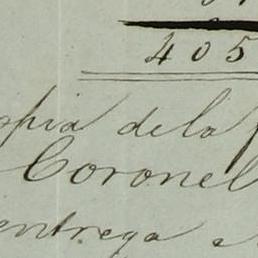 405
opia de la
Coronel
entrega